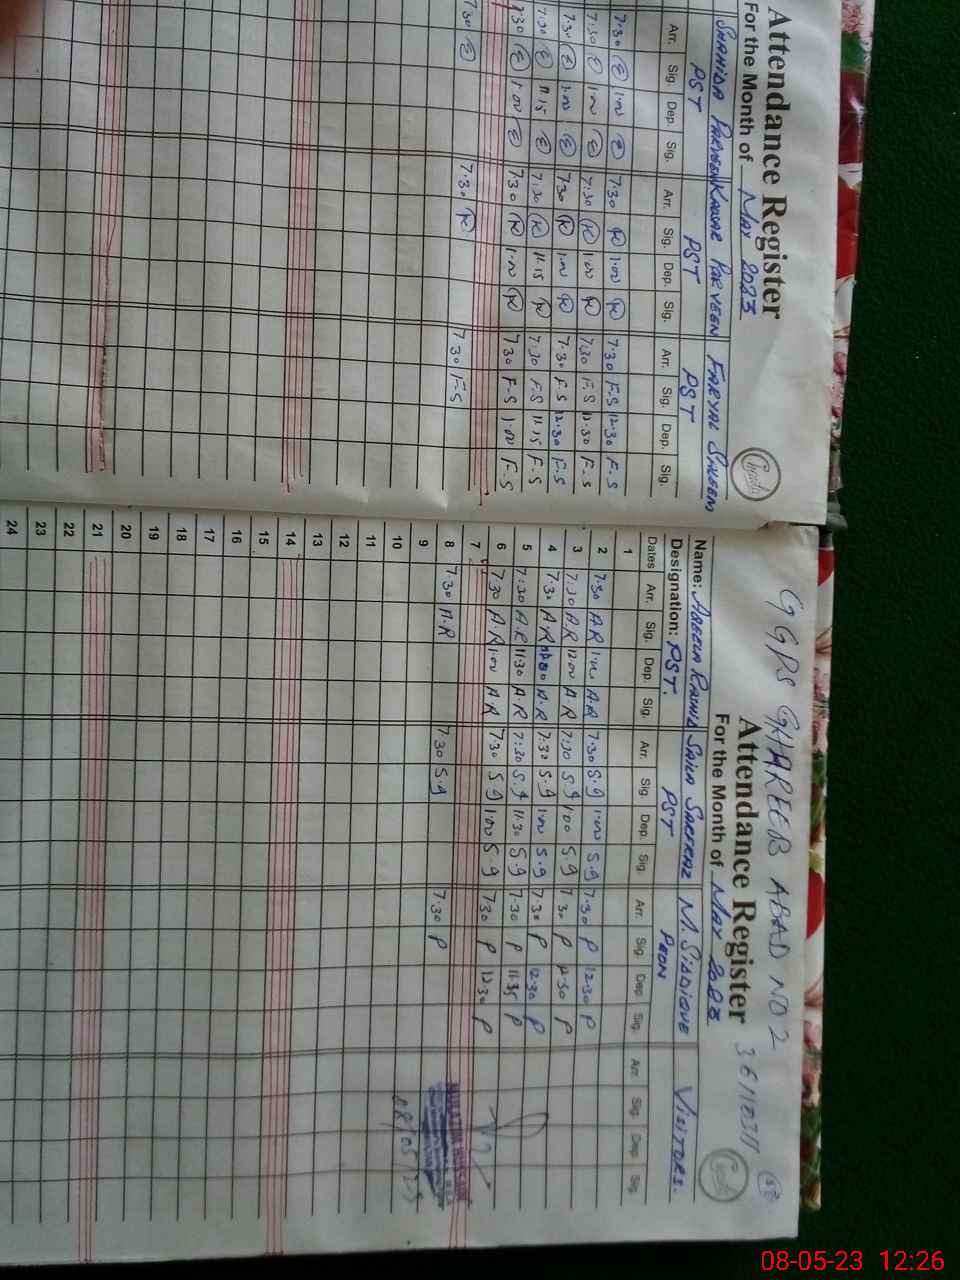 Attendance Register
For the Month of May 2023
SHAHIDA PARVEEN KAUSAR PARVEEN FARYAL SALEEM
PST PST PST
Arr. Sig. Dep. Sig. Arr. Sig. Dep. Sig. Arr. Sig. Dep. Sig.
7.30 1.00 7.30 1.00 7.30 F.S 12.30 F.S
7.30 1.00 7.30 1.00 7.30 F.S 12.30 F.S
7.30 1.00 7.30 1.00 7.30 F.S 12.30 F.S
7.30 11.15 7.30 11.15 7.30 F.S 11.15 F.S
7.30 1.00 7.30 1.00 7.30 F.S 1.00 F.S
7.30 7.30 7.30 F.S
GGPS GHAREEB ABAD NO 2 36110311
Attendance Register
For the Month of May 2023
Name: ADEELA RASHID SAILA SARFRAZ M. SIDDIQUE VISITORS.
Designation: PST. PST PEON
Dates Arr. Sig. Dep. Sig. Arr. Sig. Dep. Sig. Arr. Sig. Dep. Sig. Arr. Sig. Dep. Sig.
1
2 7.30 A.R 1.00 A.R 7.30 S.g 1.00 S.g 7.30 P 12.30 P
3 7.30 A.R 12.00 A.R 7.30 S.g 1.00 S.g 7.30 P 12.30 P
4 7.30 A.R A.R 7.30 S.g 1.00 S.g 7.30 P 12.30 P
5 7.30 A.R 11.30 A.R 7.30 S.g 11.30 S.g 7.30 P 11.35 P
6 7.30 A.R 1.00 A.R 7.30 S.g 1.00 S.g 7.30 P 12.30 P
7
8 7.30 A.R 7.30 S.g 7.30 P
9
10 08/05/23
11
12
13
14
15
16
17
18
19
20
21
22
23
24
08-05-23 12:26